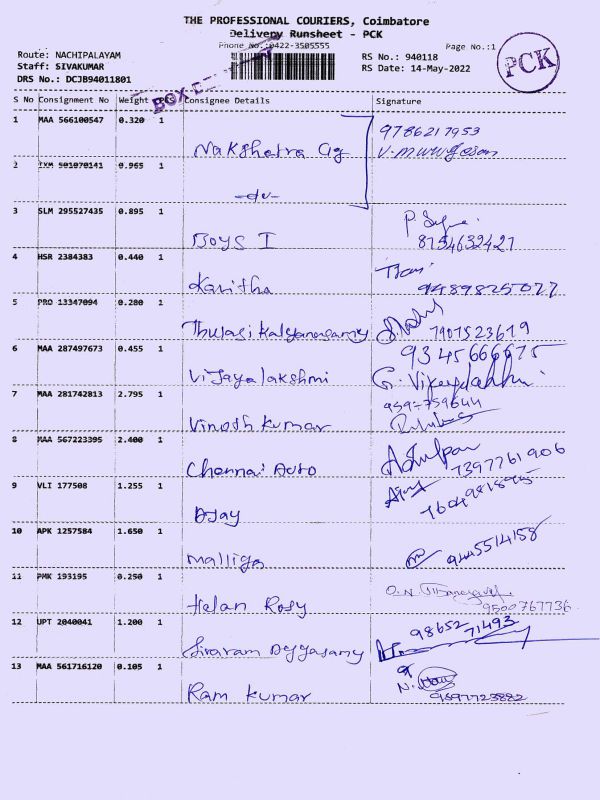 THE PROFESSIONAL COURIERS, Coimbatore
Delivery Runsheet - PCK
Phone No.:0422-3505555
Page No.:1
Route: NACHIPALAYAM
RS No.: 940118
PCK
Staff: SIVAKUMAR
RS Date: 14-May-2022
DRS No.: DCJB94011801
BOX
S No Consignment No Weight Consignee Details Signature
1 MAA 566100547 0.320 1 Nakshatra Ag 9786217953
2 TXM 501970141 0.965 1 -do-
3 SLM 295527435 0.895 1 Boys I 8754632421
4 HSR 2384383 0.440 1 Kavitha
5 PRO 13347094 0.280 1 Thulasi Kalyanasamy 7907523679
6 MAA 287497673 0.455 1 Vijayalakshmi 9345666675
G. Vijayalakshmi
7 MAA 281742813 2.795 1 Vinoth Kumar 9597759644
8 MAA 567223395 2.400 1 Chennai Auto 7397761906
9 VLI 177508 1.255 1 Ajay
10 APK 1257584 1.650 1 Malliga 9445514158
11 PMK 193195 0.250 1 Helan Rosy 9500767736
12 UPT 2040041 1.200 1 Sivaram 98652
71493
13 MAA 561716120 0.105 1 Ram Kumar 9597723882